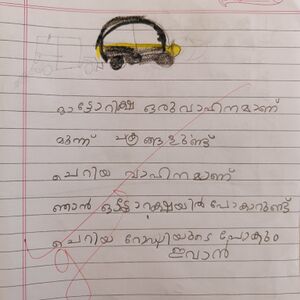 ഓട്ടോറിക്ഷ ഒരു വാഹനമാണ്
മുന്ന് ചക്രങ്ങളുണ്ട്
ചെറിയ വാഹനമാണ്
ഞാൻ ഓട്ടോറക്ഷയിൽ പോകാറുണ്ട്
ചെറിയ റോഡിയുടെ പോകും
ഇവാൻ